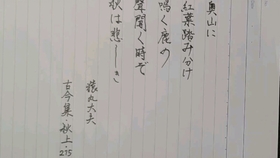 奥山に
紅葉踏み分け
鳴く鹿の
聲聞く時ぞ
秋は悲しき
猿丸大夫
古今集・秋上・215